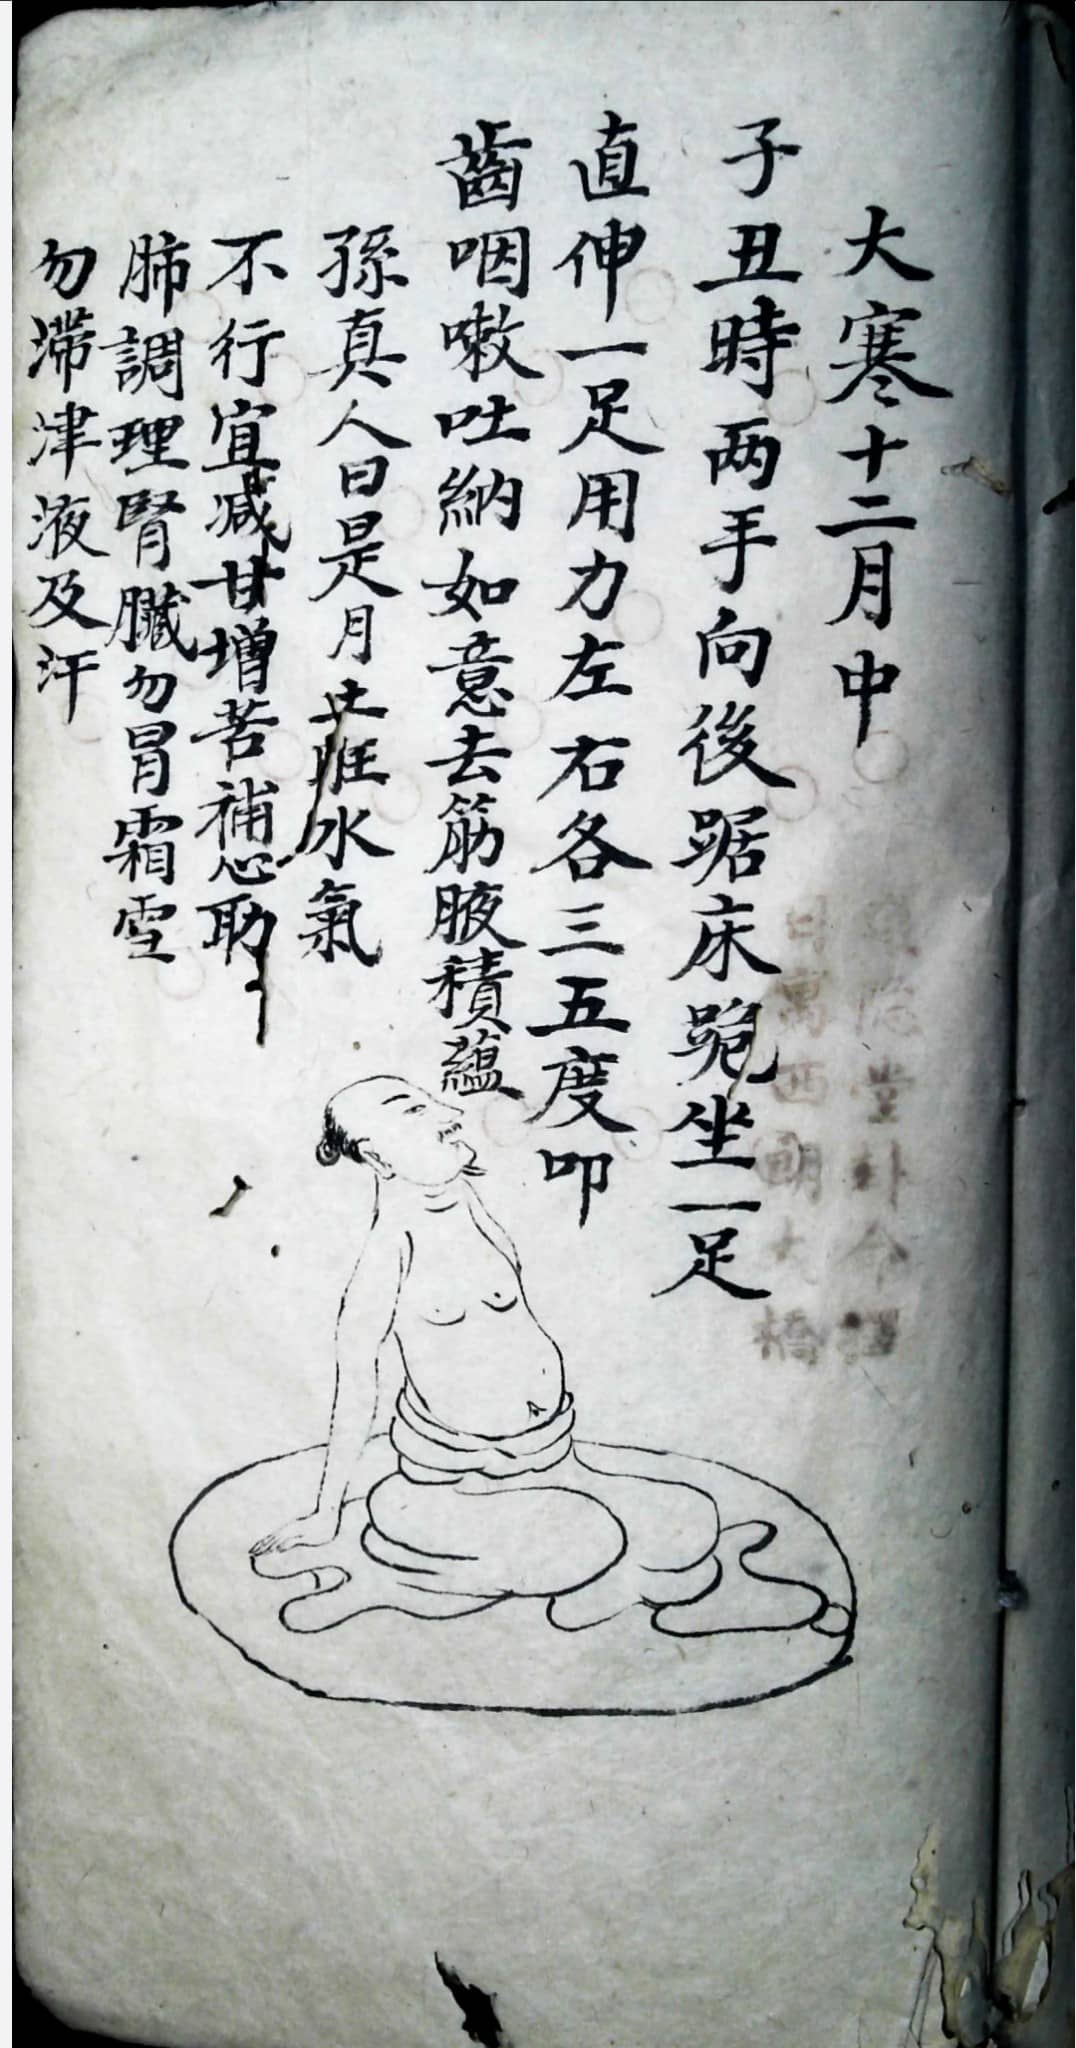 大寒十二月中
子丑時两手向後踞床跪坐一足
直伸一足用力左右各三五度叩
齒咽嗽吐納如意去筋腋積蘊
孫真人曰是月土旺水氣
不行宜减甘增苦補心助
肺調理腎臟勿冒霜雪
勿滞津液及汗